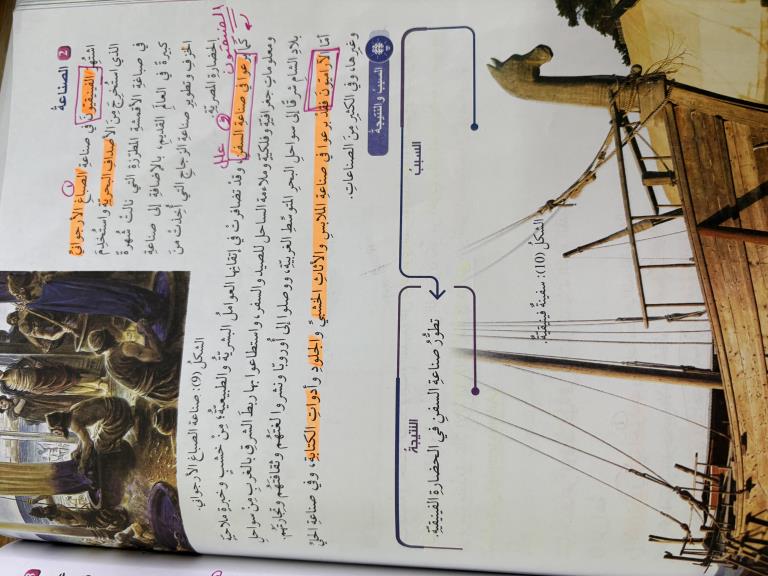 2 الصناعة
اشتُهِرَ الفينيقيّونَ في صناعةِ الصباغِ الأرجوانيِّ
الذي استُخرِجَ مِنَ الأصدافِ البحريّةِ واستُخدِمَ
في صباغةِ الأقمشةِ المطرّزةِ التي نالَتْ شُهرةً
كبيرةً في العالَمِ القديمِ، بالإضافةِ إلى صناعةِ
الخزفِ وتطويرِ صناعةِ الزجاجِ التي أُخِذَتْ مِنَ
الحضارةِ المصريّةِ.
الشكلُ (9): صناعةُ الصباغِ الأرجواني.
الفينيقيون
علل
كما برعوا في صناعةِ السفنِ، وقدْ تضافرَتْ في إتقانِها العواملُ البشريّةُ والطبيعيّةُ، مِنْ خشبٍ وخبرةٍ ملاحيّةٍ
ومعلوماتٍ جغرافيّةٍ وفلكيّةٍ وملاءمةِ الساحلِ للصيدِ والسفرِ، واستطاعوا بها ربطَ الشرقِ بالغربِ مِنْ سواحلِ
بلادِ الشامِ شرقًا إلى سواحلِ البحرِ المتوسّطِ الغربيّةِ، ووصلوا إلى أوروبّا ونشروا لُغتَهُمْ وثقافتَهُمْ وتجارتَهُم.
أمّا الآراميّونَ فقدْ برعوا في صناعةِ الملابسِ والأثاثِ الخشبيِّ والجلودِ وأدواتِ الكتابةِ، وفي صناعةِ الحُليِّ
وغيرِها، وفي الكثيرِ مِنَ الصناعاتِ.
السببُ والنتيجةُ
السببُ
النتيجةُ
تطوُّرُ صناعةِ السفنِ في الحضارةِ الفينيقيّةِ.
الشكلُ (10): سفينةٌ فينيقيّةٌ.
3